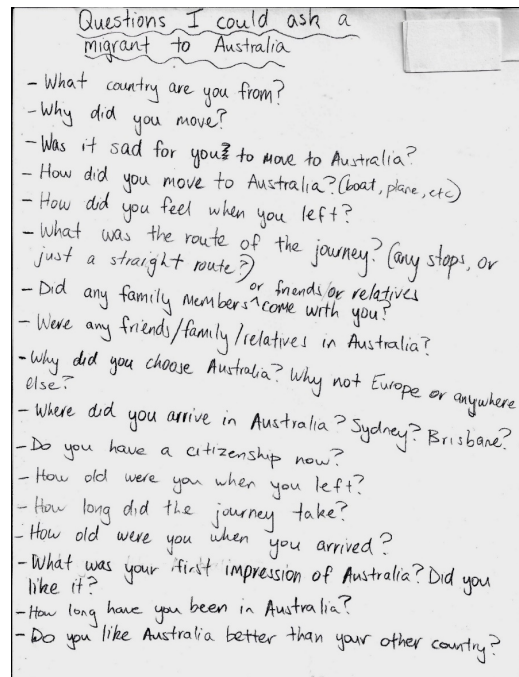 Questions I could ask a
migrant to Australia
- What country are you from?
- Why did you move?
- Was it sad for you to move to Australia?
- How did you move to Australia? (boat, plane, etc)
- How did you feel when you left?
- What was the route of the journey? (any stops, or
just a straight route?)
- Did any family members ^ or friends/or relatives come with you?
- Were any friends/family/relatives in Australia?
- Why did you choose Australia? Why not Europe or anywhere
else?
- Where did you arrive in Australia? Sydney? Brisbane?
- Do you have a citizenship now?
- How old were you when you left?
- How long did the journey take?
- How old were you when you arrived?
- What was your first impression of Australia? Did you
like it?
- How long have you been in Australia?
- Do you like Australia better than your other country?